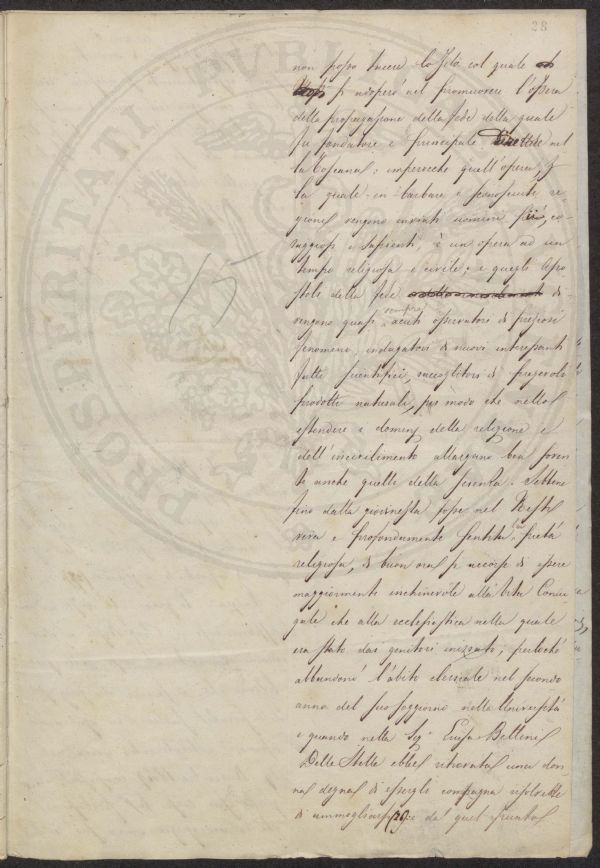 28
non posso tacere lo zelo col quale
si adoperò nel promuovere l'opera
della propagazione della fede della quale
fu fondatore e principale Direttore nel
la Toscana: imperocchè quell'opera, p
la quale in barbare e sconosciute re-
gioni vengono inviati uomini pii, co-
raggiosi e sapienti, è un opera ad un
tempo religiosa e civile; e questi Apo
stoli della fede di-
vengono quasi sempre acuti osservatori di preziosi
fenomeni, indagatori di nuovi interessanti
fatti scientifici, raccoglitori di pregevoli
prodotti naturali, per modo che nello
estendere i dominj della religione e
dell'incivilimento allargano ben soven
te anche quelli della scienza. Sebbene
fino dalla giovinezza fosse nel
viva e profondamente sentita la pietà
religiosa, di buon ora si accorse di essere
maggiormente inchinevole alla vita Coniu
gale che alla ecclesiastica nella quale
era stato dai genitori inizzato; perlochè
abbandonò l'abito clericale nel secondo
anno del suo soggiorno nella Università
e quando nella Sigª Luisa Bellini
Della Stella ebbe ritrovata una don-
na degna di essergli compagna risolvette
di ammogliarsi (29) e da quel
15
PROSPERITATI PVBLI